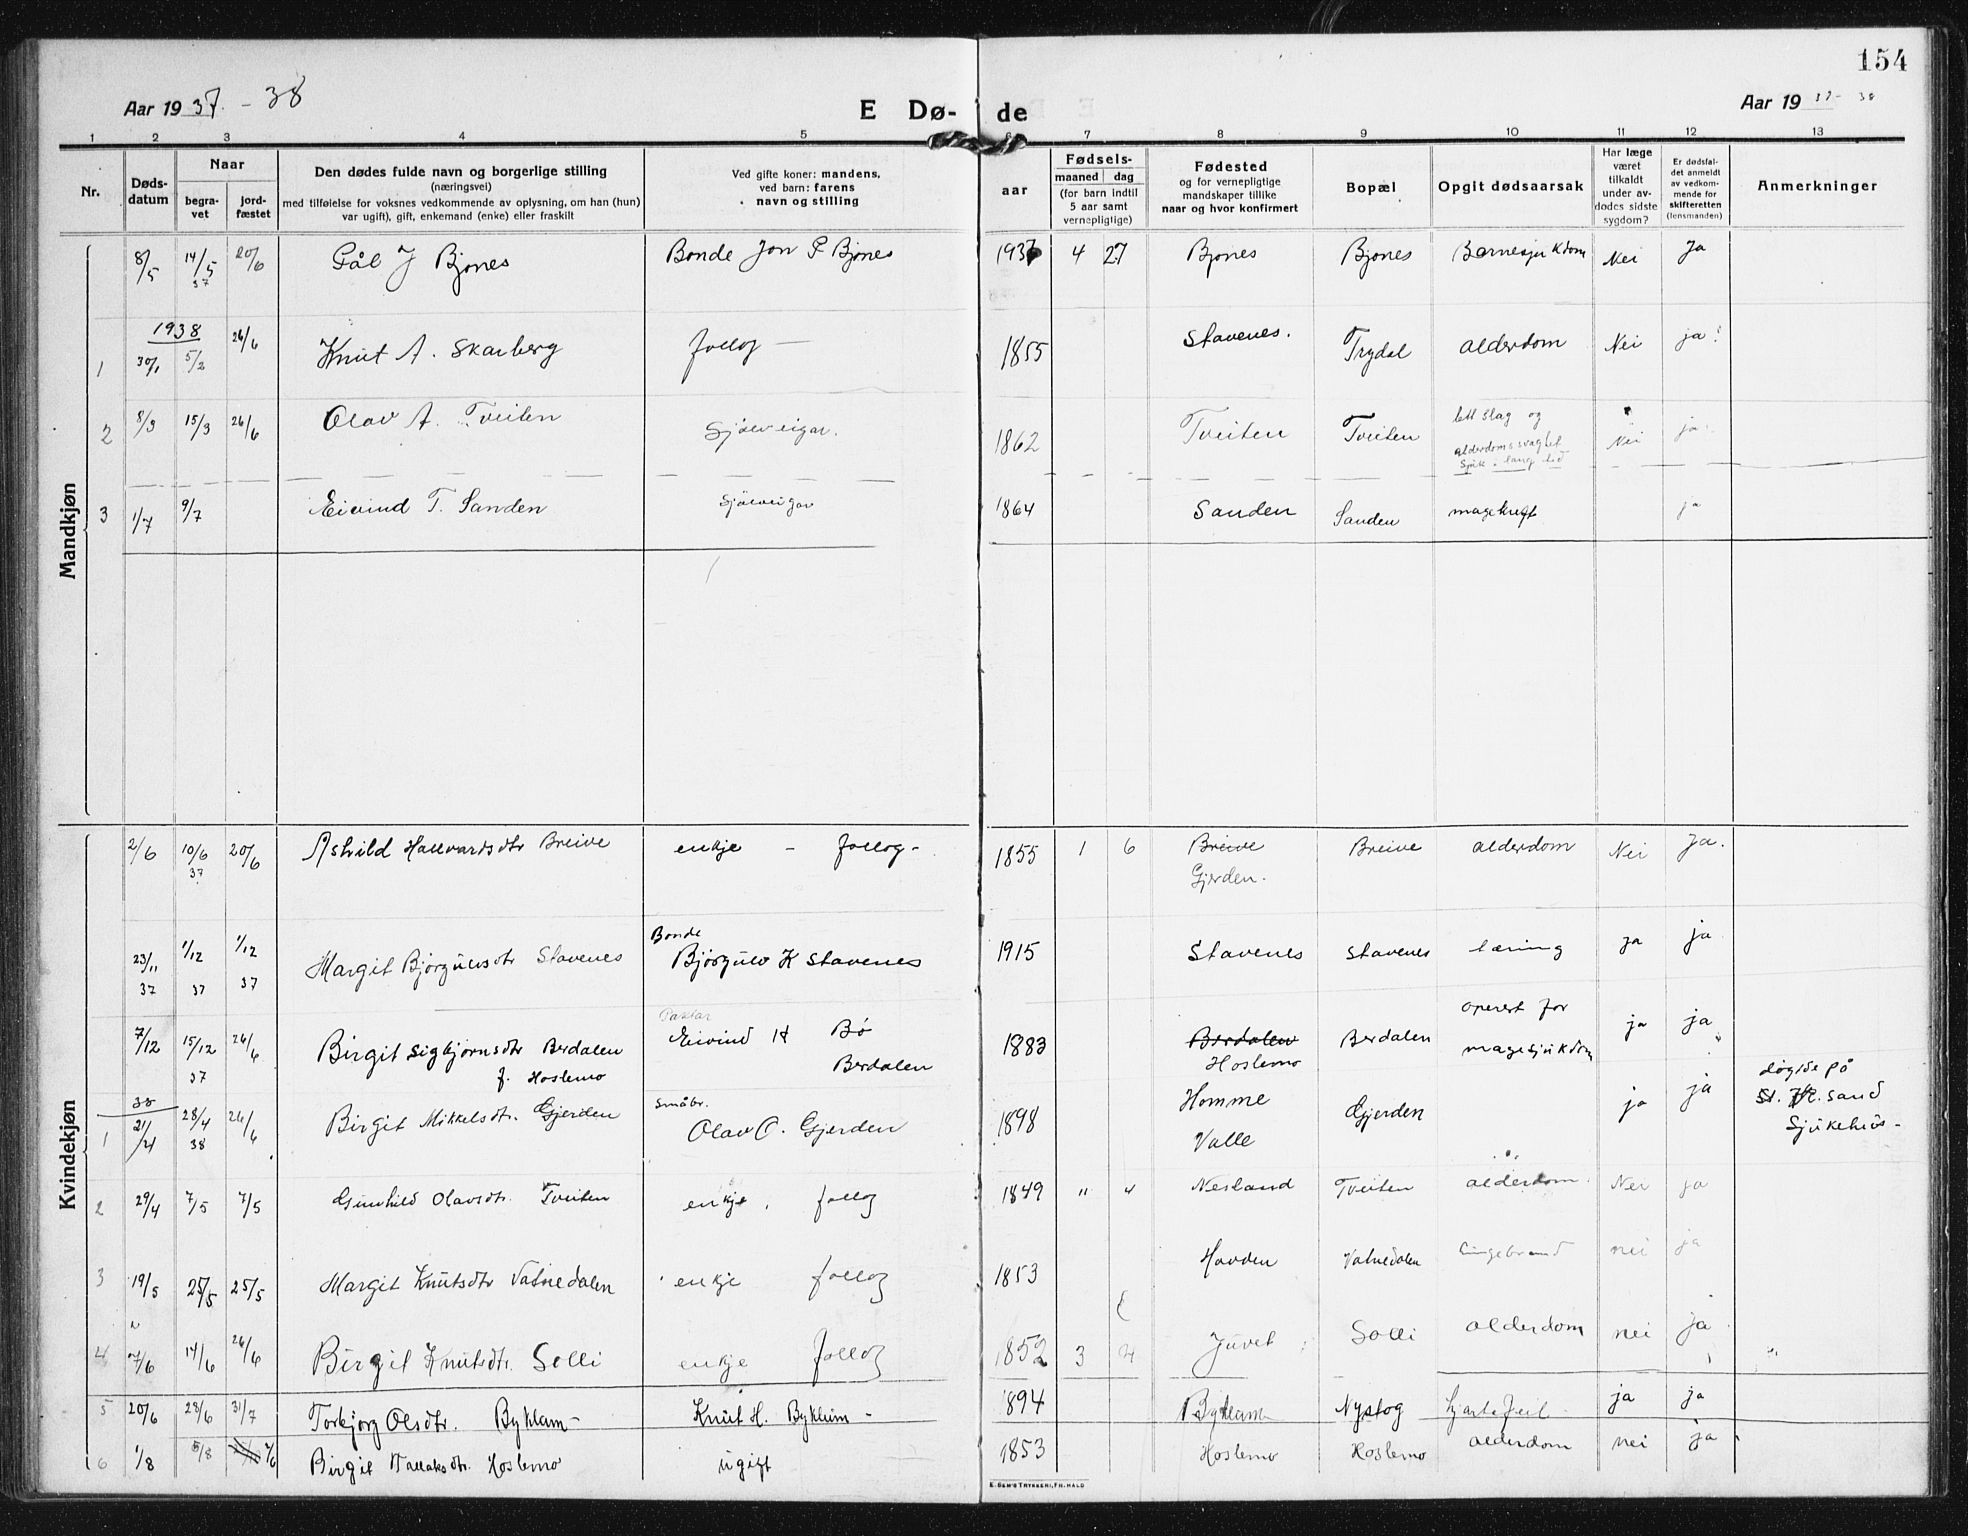 154
Aar 1937 - 38
E Dø- de
Aar 19 37- 38
1 2 3 4 5 6 7 8 9 10 11 12 13
Nr.
Døds-datum
Naar
begra-vet
jord-fæstet
Den dødes fulde navn og borgerlige stilling
(næringsvei)
med tilføielse for voksnes vedkommende av oplysning, om han (hun)
var ugift), gift, enkemand (enke) eller fraskilt
Ved gifte koner: mandens,
ved barn: farens
navn og stilling
aar
Fødsels-
maaned dag
(for barn indtil
5 aar samt
vernepligtige)
Fødested
og for vernepligtige
mandskaper tillike
naar og hvor konfirmert
Bopæl
Opgit dødsaarsak
Har læge
været
tilkaldt
under av-
dødes sidste
sygdom?
Er dødsfal-
det anmeldt
av vedkom-
mende for
skifteretten
(lensmanden)
Anmerkninger
Mandkjøn
8/5 14/5 37 20/6 Pål J Bjones Bonde Jon P Bjones 1937 4 27 Bjones Bjones Barnesjukdom Nei Ja
1938
1 30/1 5/2 26/6 Knut A. Skarberg follog — 1855 Stavenes. Trydal alderdom Nei ja
2 8/3 15/3 26/6 Olav A. Tveiten Sjølveigar. 1862 Tveiten Tveiten lett slag og
alderdomssvaghet
Sjuk i lang tid Nei ja
3 1/7 9/7 Eivind T. Sanden Sjølveigar 1864 Sanden Sanden magekreft ja
Kvindekjøn
2/6 10/6 37 20/6 Ashild Hallvardsdtr Breive enkje - follog - 1855 1 6 Breive
Gjerden. Breive alderdom Nei Ja.
23/11 37 1/12 37 1/12 37 Margit Bjørgulvsdtr Stavenes Bonde
Bjørgulv K Stavenes 1915 Stavenes Stavenes tæring ja ja
7/12 15/12 37 26/6 Birgit Sigbjørnsdtr Berdalen
f. Hoslemo Eivind H Bø
Berdalen 1883 Berdalen
Hoslemo Berdalen operert for
magesjukdom ja ja
38
1 21/4 28/4 38 26/6 Birgit Mikkelsdtr. Gjerden Småbr.
Olav O. Gjerden 1898 Homme
Valle Gjerden ja ja døgde på
Kr. sand
Sjukehus -
2 29/4 7/5 7/5 Gunhild Olavsdtr. Tveiten enkje, follog 1849 " " Nesland Tveiten alderdom. Nei ja
3 19/5 25/5 25/5 Margit Knutsdtr Vatnedalen enkje follog 1853 Hovden Vatnedalen nei ja
4 7/6 14/6 26/6 Birgit Knutsdtr. Solli enkje follog 1852 3 4 Juvet Solli alderdom nei ja
5 20/6 28/6 31/7 Torbjørg Olsdtr. Byklum - Knut H. Byklum - 1894 Byklum Nystog hjartefeil ja ja
6 1/8 5/8 Birgit Tallaksdtr. Hoslemo ugift 1853 Hoslemo Hoslemo alderdom nei ja
E. SEM'S TRYKKERI, FR. HALD